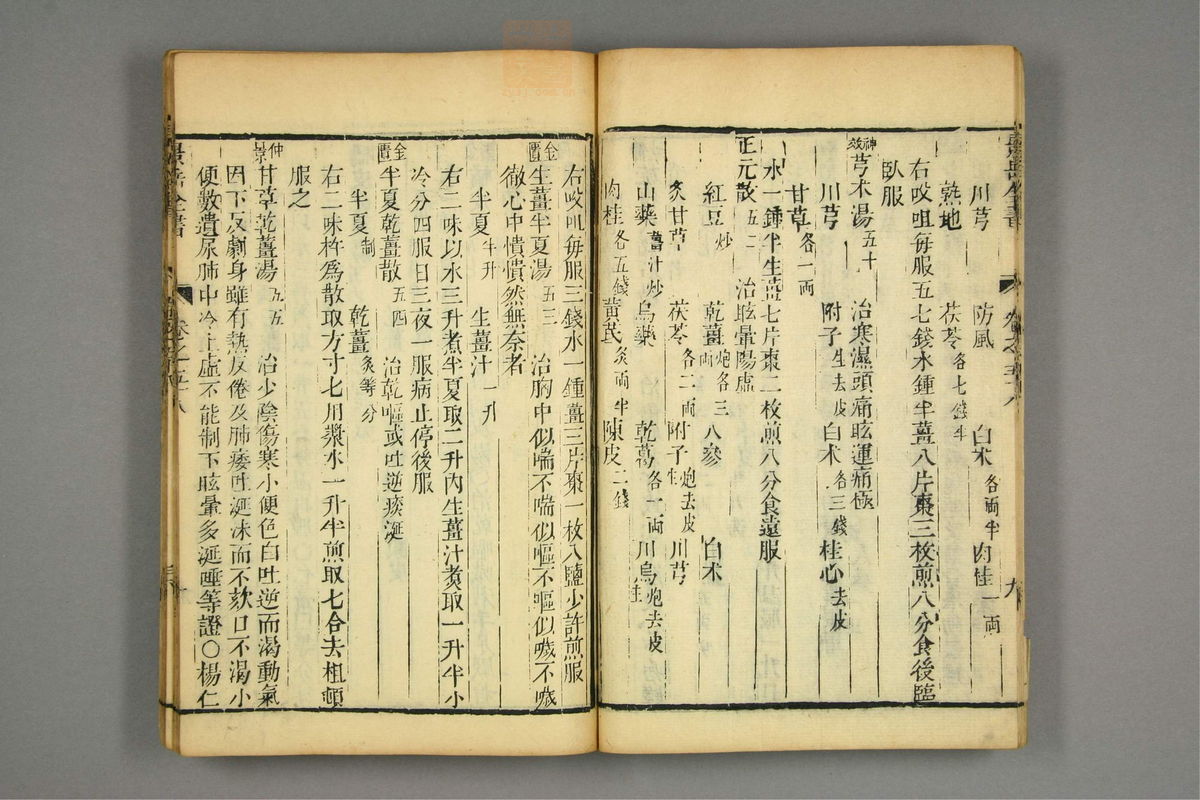 川芎 防風 白朮各兩半 肉桂一兩
熟地 茯苓各七錢半
右㕮咀每服五七錢水鍾半薑八片棗三枚煎八分食後臨
臥服
神效芎朮湯五十 治寒濕頭痛眩運痛極
川芎 附子生去皮 白朮各三錢 桂心去皮
甘草各一兩
水一鍾半生薑七片棗二枚煎八分食遠服
正元散五二 治眩暈陽虛
紅豆炒 乾薑炮各三兩 人參 白朮
炙甘草 茯苓各二兩 附子炮去皮 川芎
山藥薑汁炒 烏藥 乾葛各一兩 川烏炮去皮
肉桂各五錢 黃芪炙兩半 陳皮二錢
右㕮咀每服三錢水一鍾薑三片棗一枚入鹽少許煎服
金匱生薑半夏湯五三 治胸中似喘不喘似嘔不嘔似噦不噦
徹心中憒憒然無奈者
半夏半升 生薑汁一升
右二味以水三升煮半夏取二升內生薑汁煮取一升半小
冷分四服日三夜一服病止停後服
金匱半夏乾薑散五四 治乾嘔或吐逆痰涎
半夏制 乾薑炙等分
右二味杵為散取方寸七用漿水一升半煎取七合去柤頓
服之
仲景甘草乾薑湯五五 治少陰傷寒小便色白吐逆而渴動氣
因下反劇身雖有熱反倦及肺痿吐涎沫而不欬口不渴小
便數遺尿肺中冷上虛不能制下眩暈多涎唾等證○楊仁
景岳全書
卷之五十八